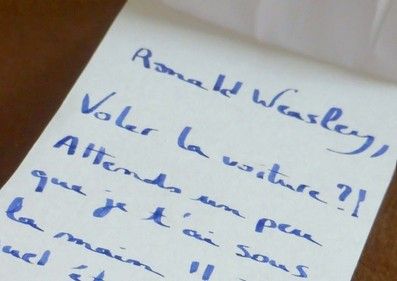 Ronald Weasley,
Voler la voiture ?!
Attends un peu
que je t'ai sous
la main !!